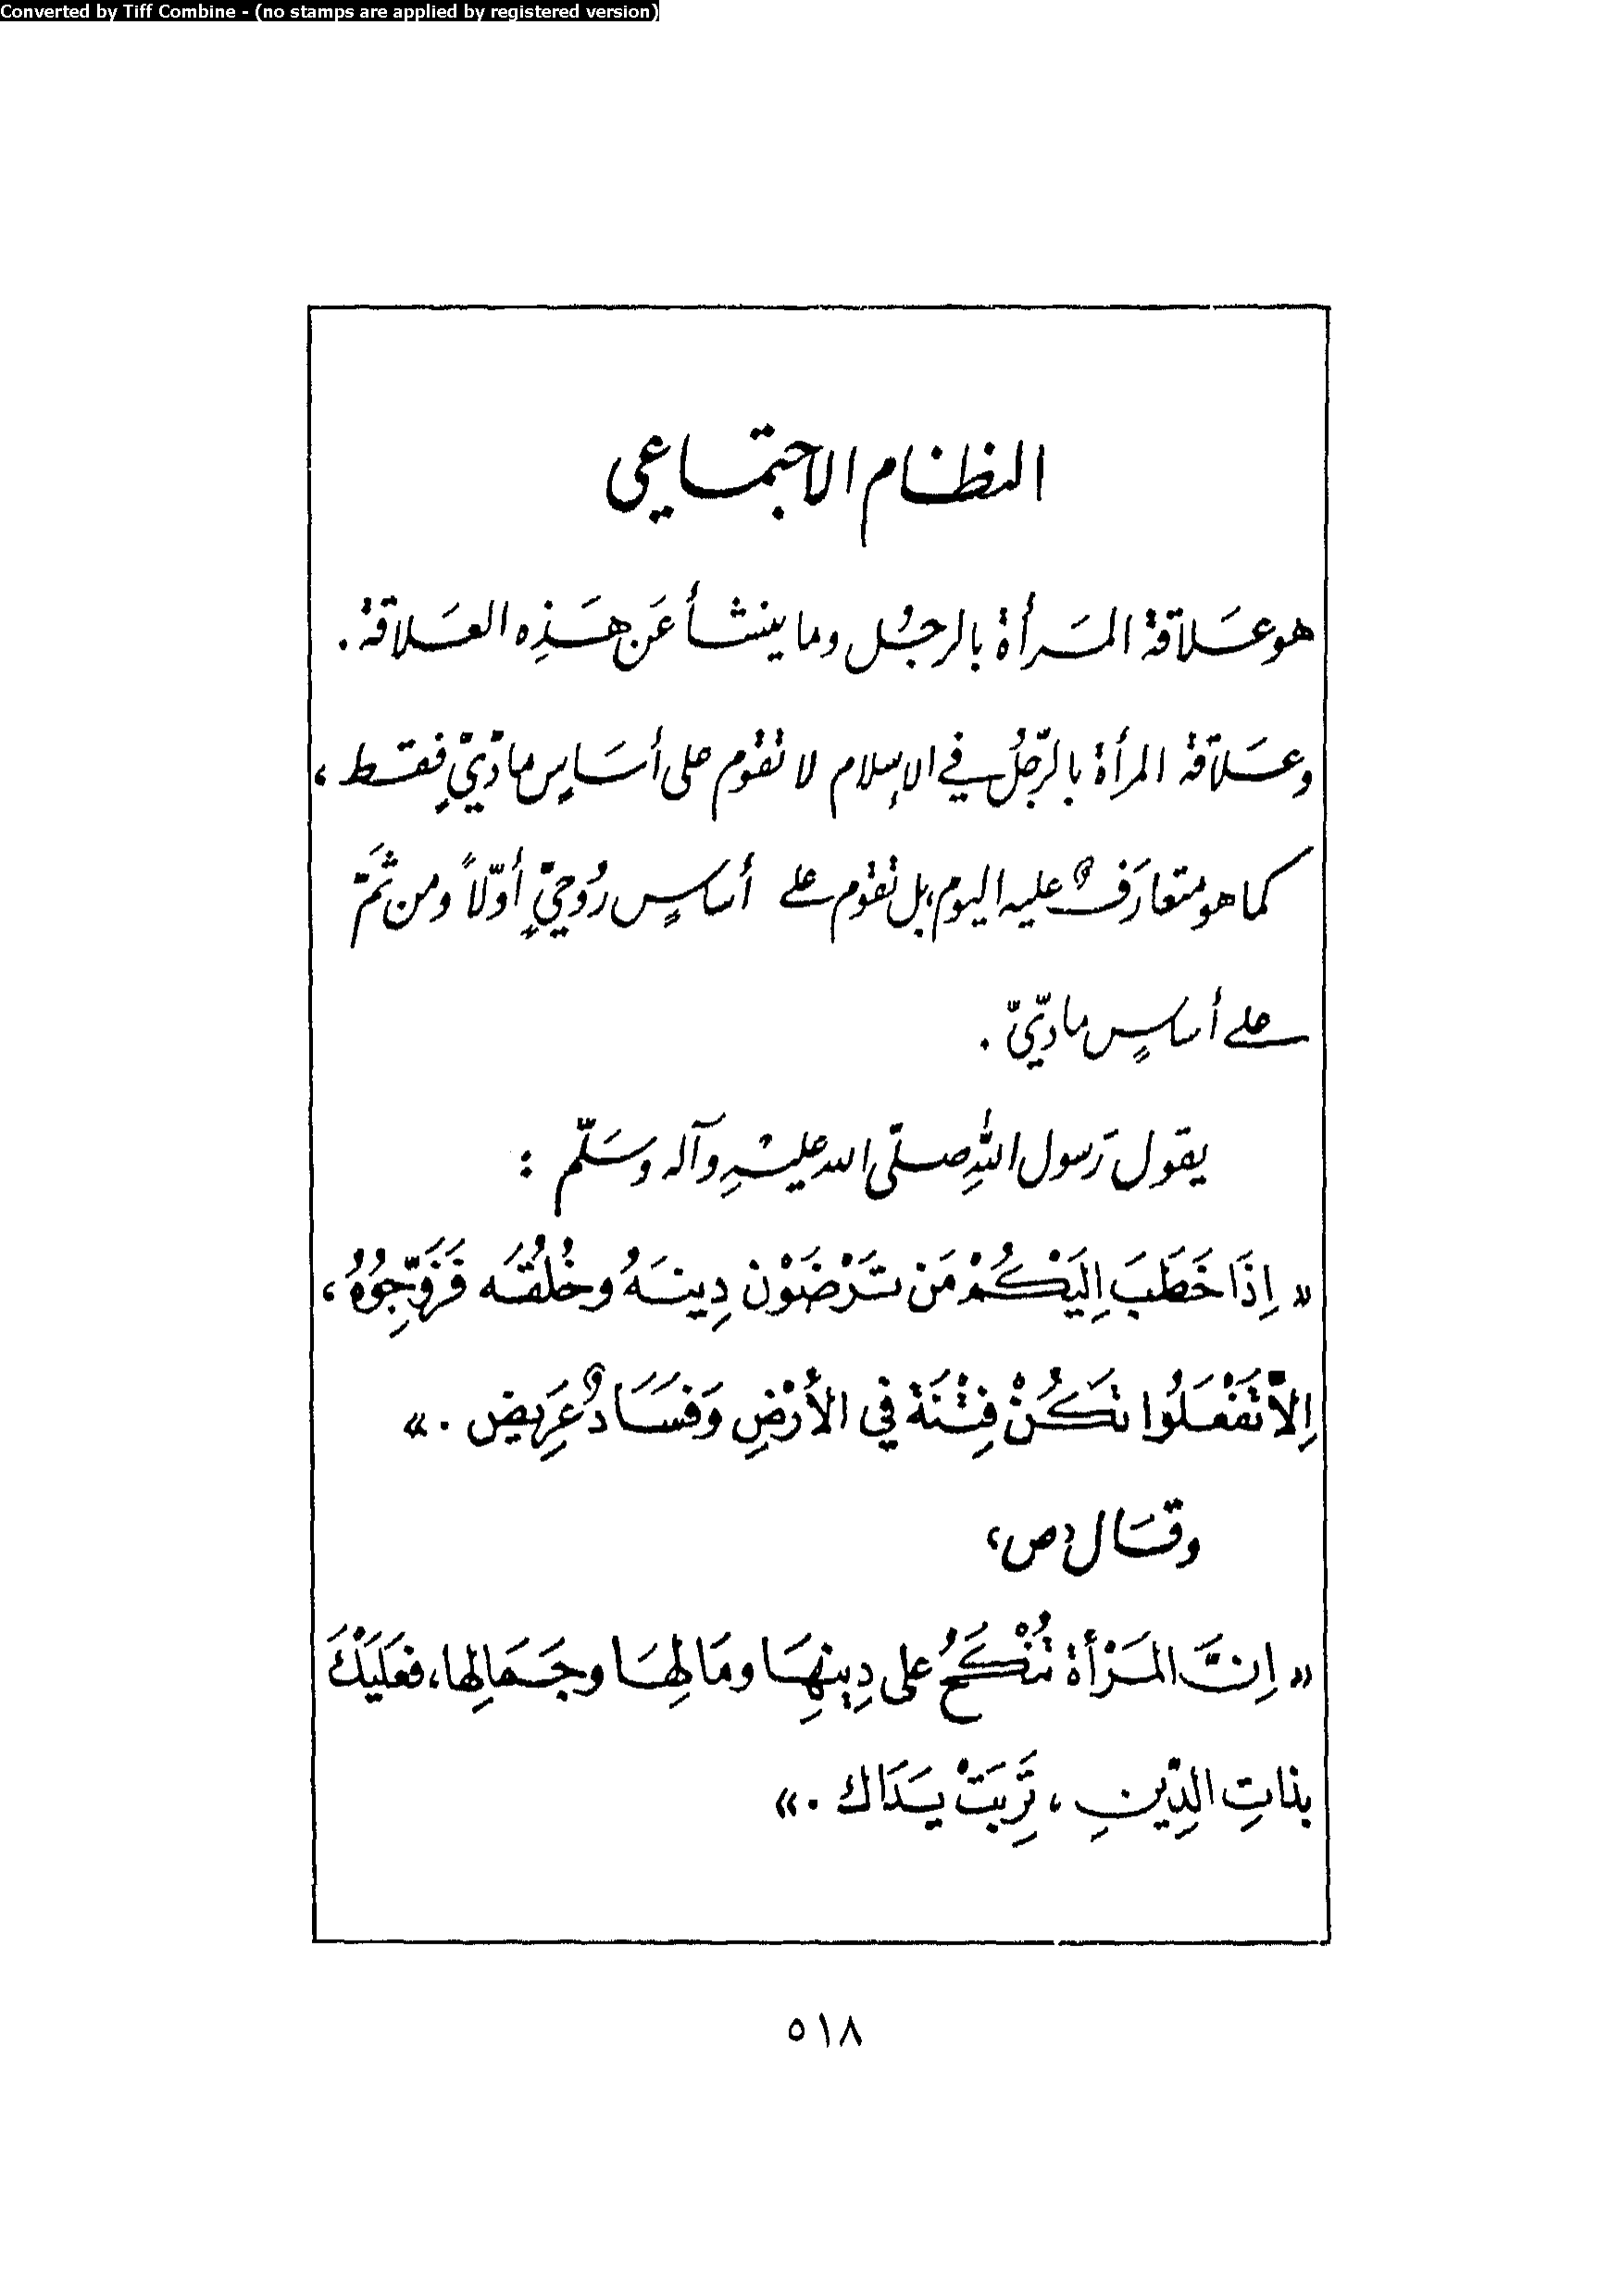 Converted by Tiff Combine - (no stamps are applied by registered version)
النظام الاجتماعي
هو عَلاقة المَرأة بالرجُل وما ينشأ عَن هَذِه العَلاقة .
وعَلاقة المرأة بالرّجُل في الإسلام لا تقوم على أسَاسٍ مادّيٍّ فقط ،
كما هو متعارَفٌ عليه اليوم، بل تقوم على أساسٍ رُوحيٍّ أوّلاً ومن ثَمّ
على أساسٍ مادّيّ .
يقول رَسول اللهِ صلّى الله عليْهِ وآله وسَلّم :
« اِذَا خَطَبَ اِلَيْكُمْ مَن تَرْضَوْن دِينَهُ وخُلُقَه فَزَوِّجُوُهُ ،
اِلاّ تَفْعَلُوا تَكُنْ فِتْنَة في الأرْضِ وَفَسَادٌ عَرِيض . »
وقَال (ص)
« اِنَّ المَرْأة تُنْكَحُ على دِينِهَا ومَالِهَا وجَمَالِها، فعَلَيْكَ
بذاتِ الدِّينِ ، تَرِبَتْ يَدَاك . »
٥١٨